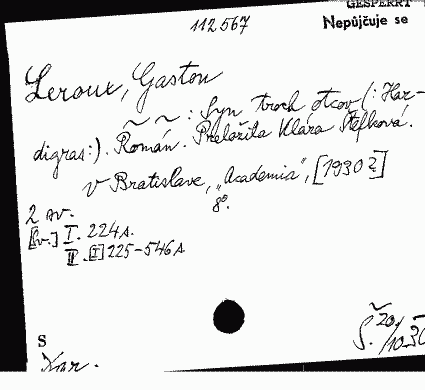 GESPERRT
112567
Nepůjčuje se
Leroux, Gaston
~ ~ : Syn troch otcov (: Har-
digras:). Román. Preložila Klára Štefková.
V Bratislave, „Academia", [1930?]
8°.
2 sv.
[Sv.] I. 224 s.
II. [I] 225-546 s.
S
Š. 20/10.30